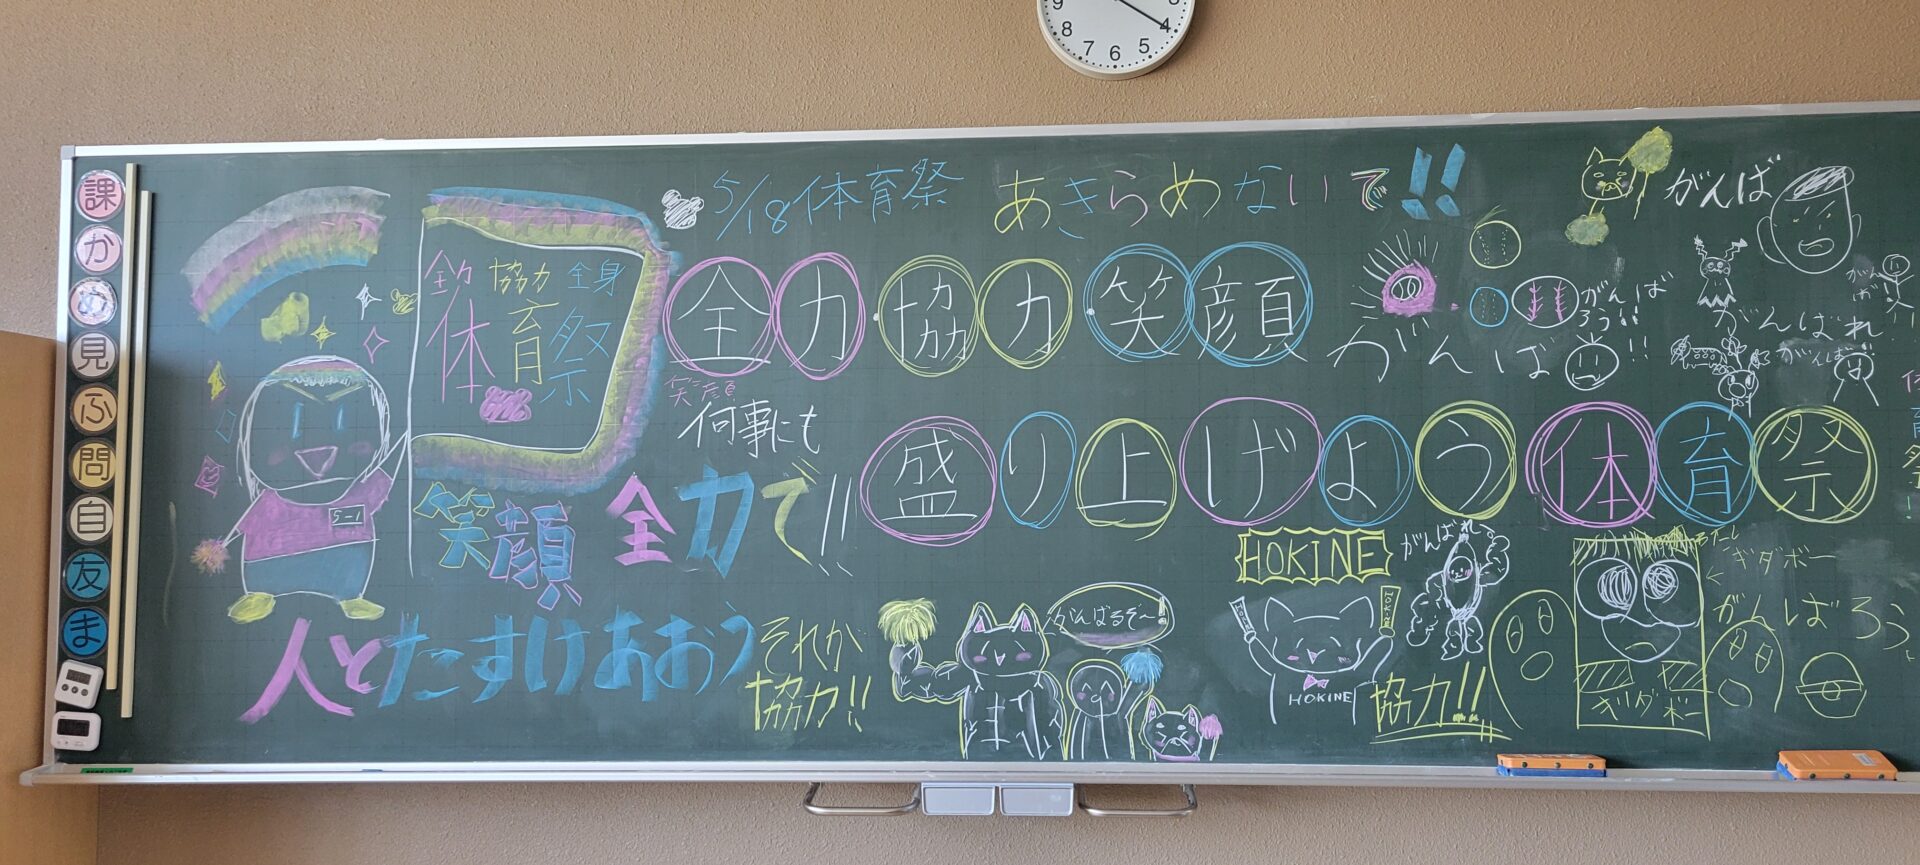 9 8 7 6 5 4
課
か
め
見
ふ
問
自
友
ま
5/18体育祭 あきらめないで!!
協力 全身
体育祭
全力 協力 笑顔
笑顔
何事にも
盛り上げよう体育祭
笑顔 全力で!!
5-1
人とたすけあおう
それが
協力!!
がんばるぞ~!
HOKINE
HOKINE
協力!!
がんばれ
がんば
がんばろう!!
がんば!!
がんばれ
がんば!!
がんば
ギダボー
がんばろう
ギダボー